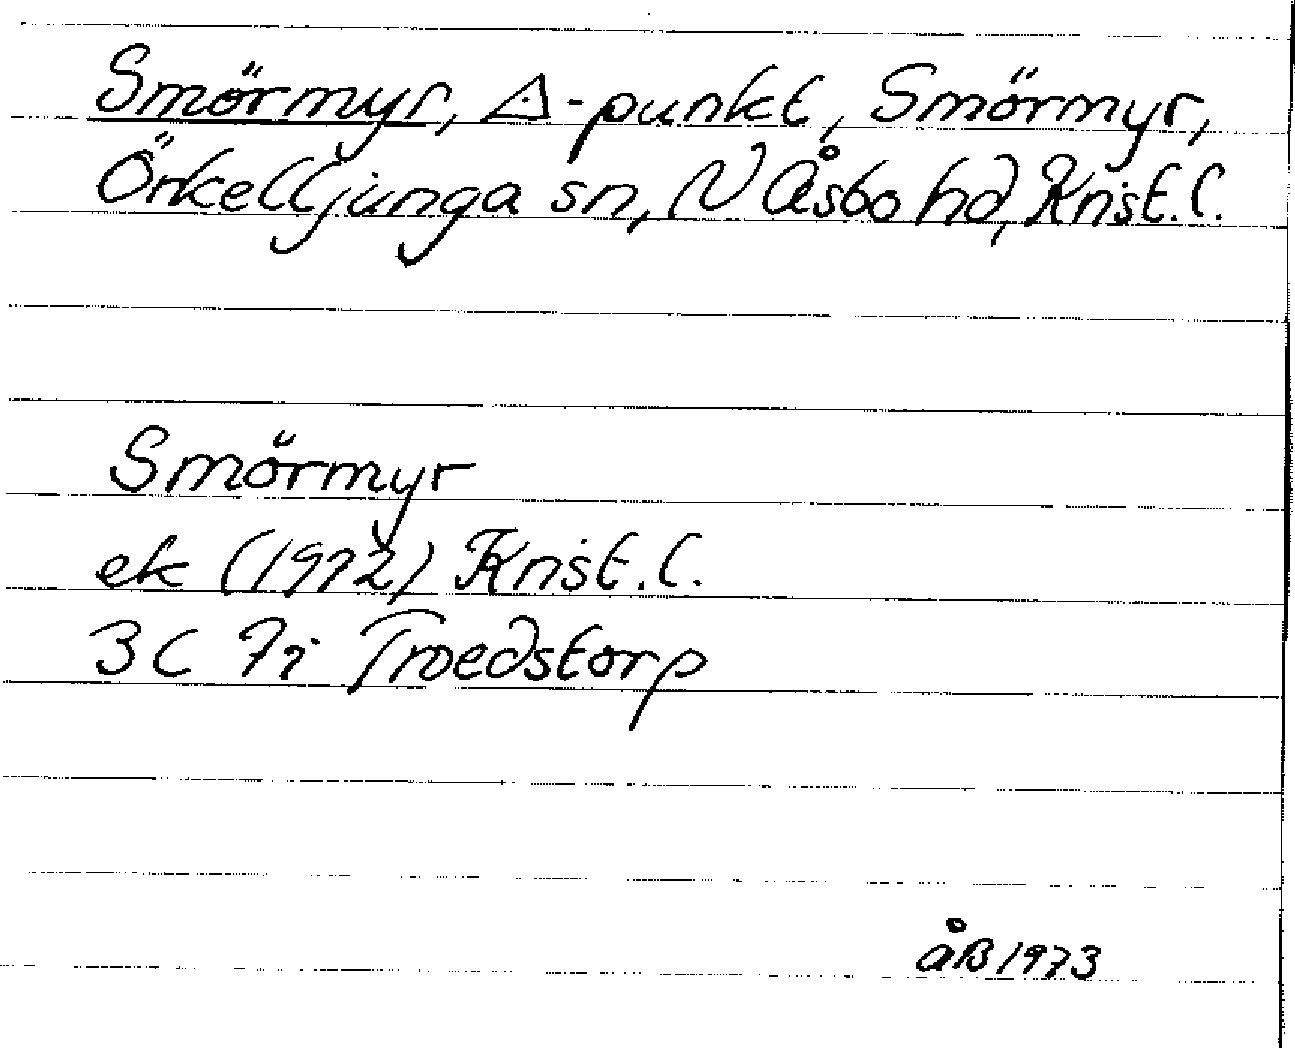 Smörmyr, △-punkt, Smörmyr,
Örkelljunga sn, N Åsbo hd, Krist.l.
Smörmyr
ek (1972) Krist.l.
3C 7i Troedstorp
åB 1973